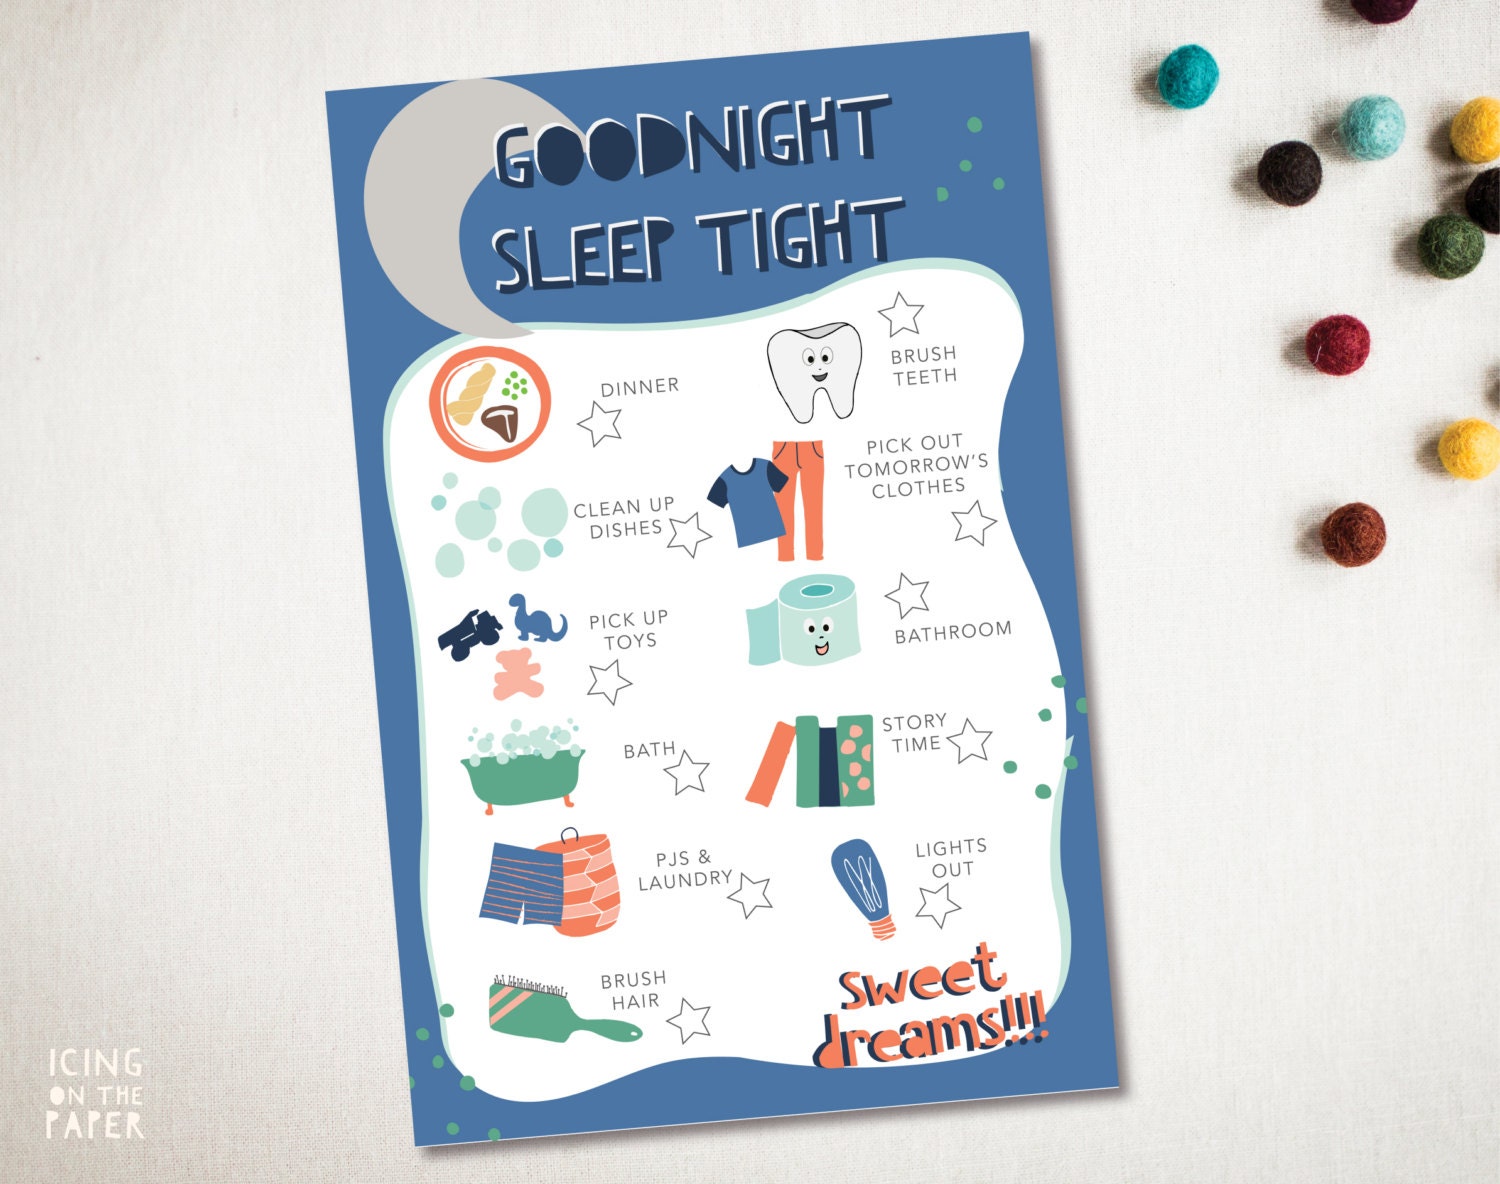 GOODNIGHT
SLEEP TIGHT
DINNER
CLEAN UP
DISHES
PICK UP
TOYS
BATH
PJS &
LAUNDRY
BRUSH
HAIR
BRUSH
TEETH
PICK OUT
TOMORROW'S
CLOTHES
BATHROOM
STORY
TIME
LIGHTS
OUT
sweet
dreams!!!
ICING
ON THE
PAPER